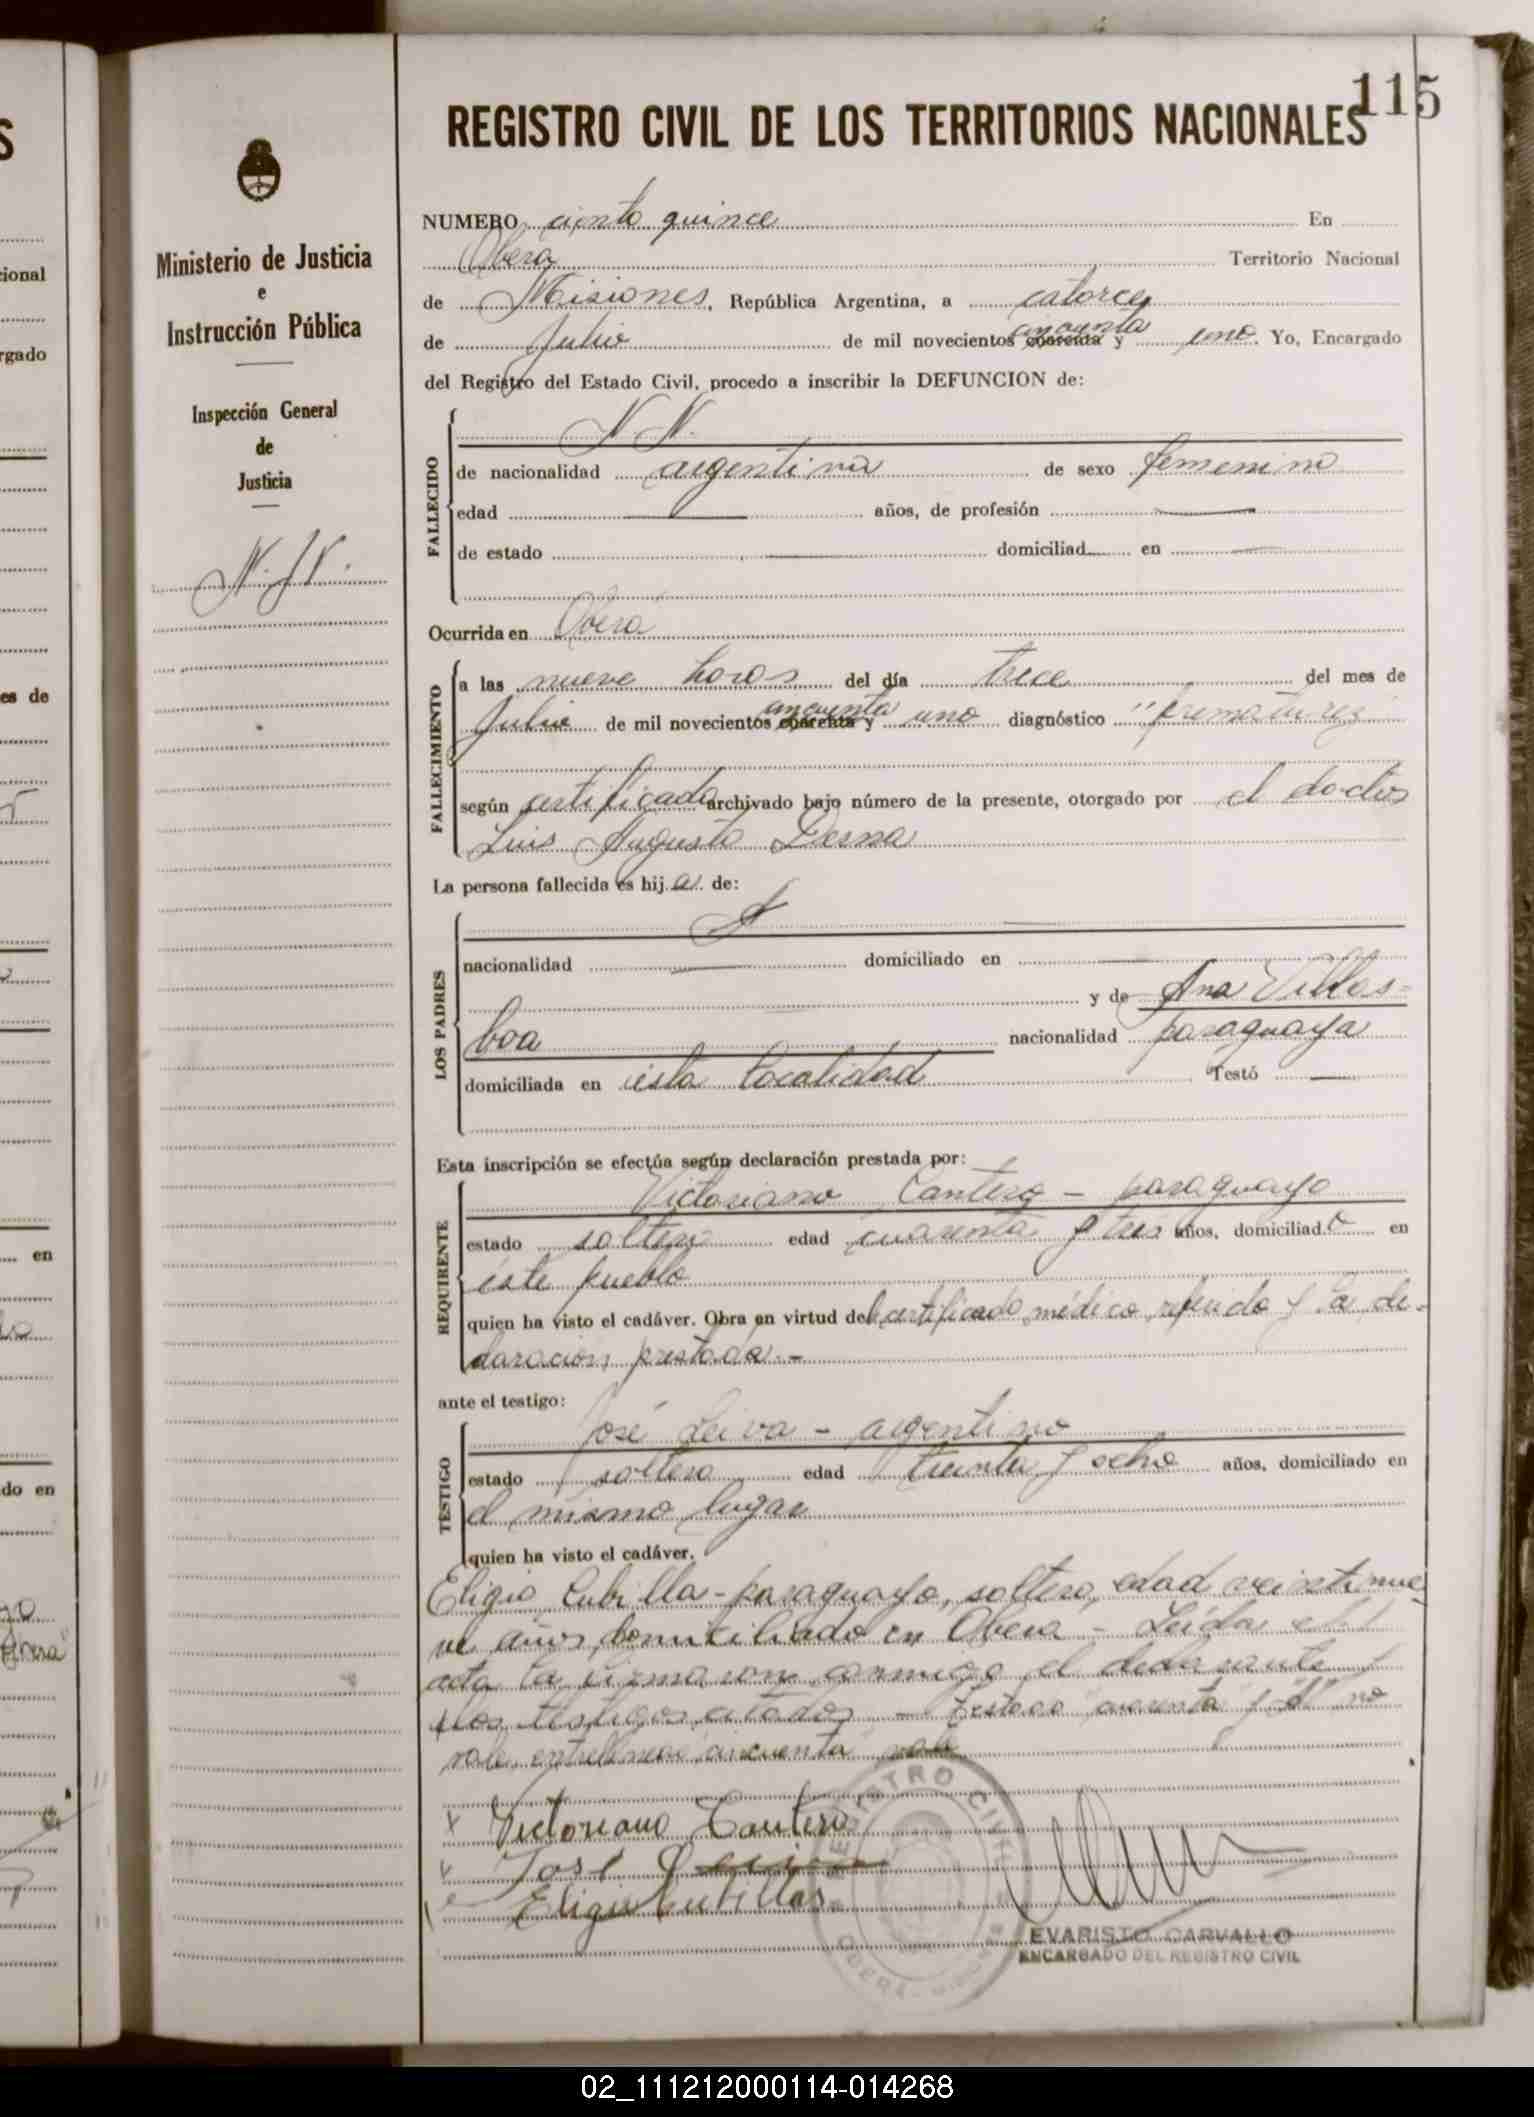 115
REGISTRO CIVIL DE LOS TERRITORIOS NACIONALES
Ministerio de Justicia
e
Instrucción Pública
Inspección General
de
Justicia
N. N.
NUMERO ciento quince En
Oberá Territorio Nacional
de Misiones, República Argentina, a catorce
de Julio de mil novecientos cuarenta cincuenta y uno. Yo, Encargado
del Registro del Estado Civil, procedo a inscribir la DEFUNCION de:
FALLECIDO
N. N.
de nacionalidad argentina de sexo femenino
edad años, de profesión
de estado domiciliad en
Ocurrida en Oberá
FALLECIMIENTO
a las nueve horas del día trece del mes de
Julio de mil novecientos cuarenta cincuenta y uno diagnóstico "prematurez
según certificado archivado bajo número de la presente, otorgado por el doctor
Luis Augusto Derna
La persona fallecida es hij a de:
LOS PADRES
nacionalidad domiciliado en
y de Ana Villas-
boa nacionalidad paraguaya
domiciliada en esta localidad Testó
Esta inscripción se efectúa según declaración prestada por:
REQUIRENTE
Victoriano Cantero - paraguayo
estado soltero edad cuarenta y tres años, domiciliad o en
éste pueblo
quien ha visto el cadáver. Obra en virtud del certificado médico referido y la de-
claración prestada.-
ante el testigo:
TESTIGO
José Leiva - argentino
estado soltero edad treinta y ocho años, domiciliado en
el mismo lugar
quien ha visto el cadáver.
Eligio Cubilla - paraguayo, soltero, edad veintinue
ve años domiciliado en Oberá - Leída el
acta la firmaron conmigo el declarante y
los testigos citados - Testado "cuarenta" y no
vale entrelíneas "cincuenta" vale
Victoriano Cantero
José Leiva
Eligio Cubillas
REGISTRO CIVIL
OBERÁ - MISIONES
EVARISTO CARVALLO
ENCARGADO DEL REGISTRO CIVIL
02_111212000114-014268